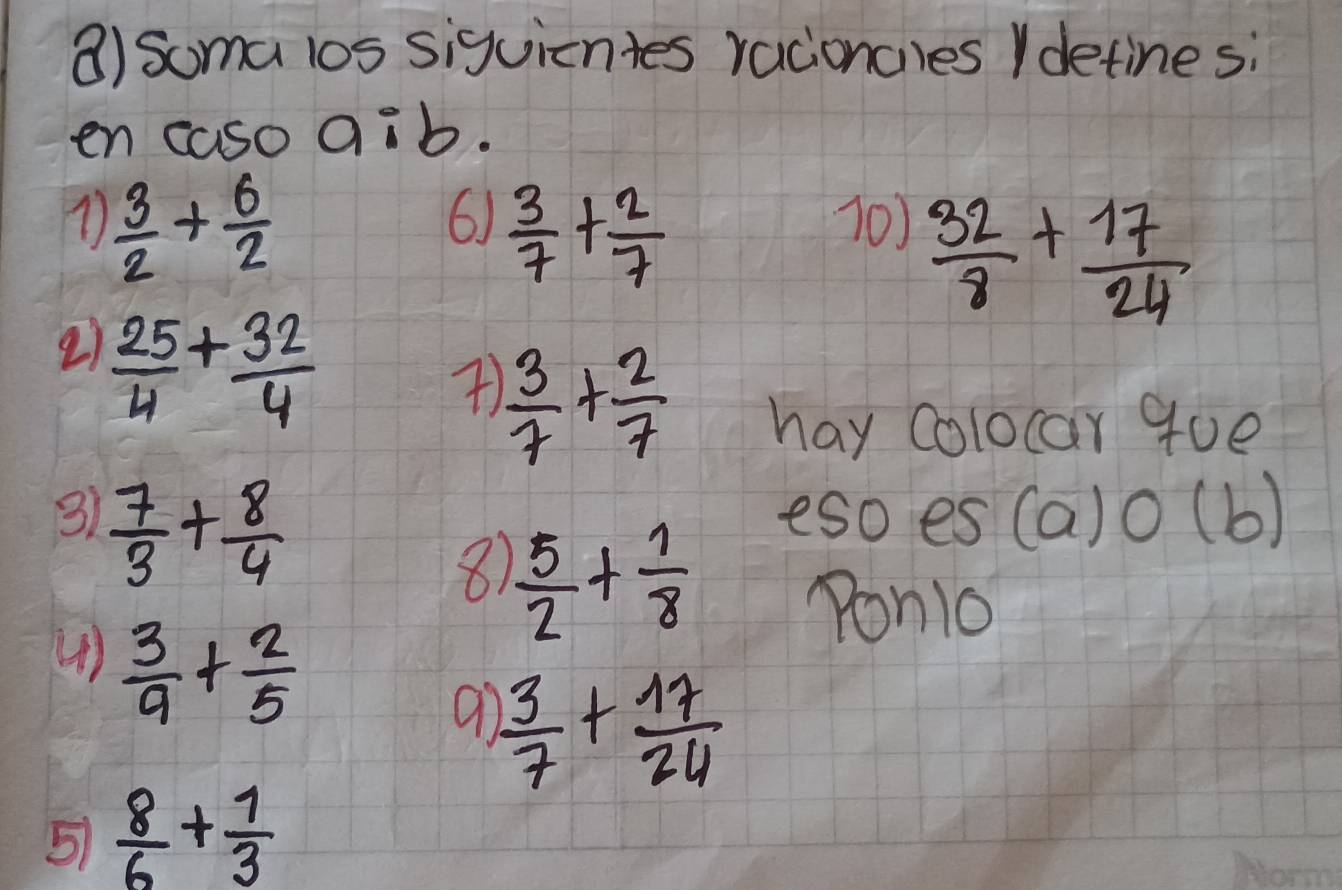 a) Soma los siguientes racionales y define si
en caso a i b.
1) 3/2 + 6/2
2) 25/4 + 32/4
3) 7/3 + 8/4
4) 3/9 + 2/5
5) 8/6 + 1/3
6) 3/7 + 2/7
7) 3/7 + 2/7
8) 5/2 + 1/8
9) 3/7 + 17/24
10) 32/8 + 17/24
hay colocar que
eso es (a) o (b)
Ponlo
Norm